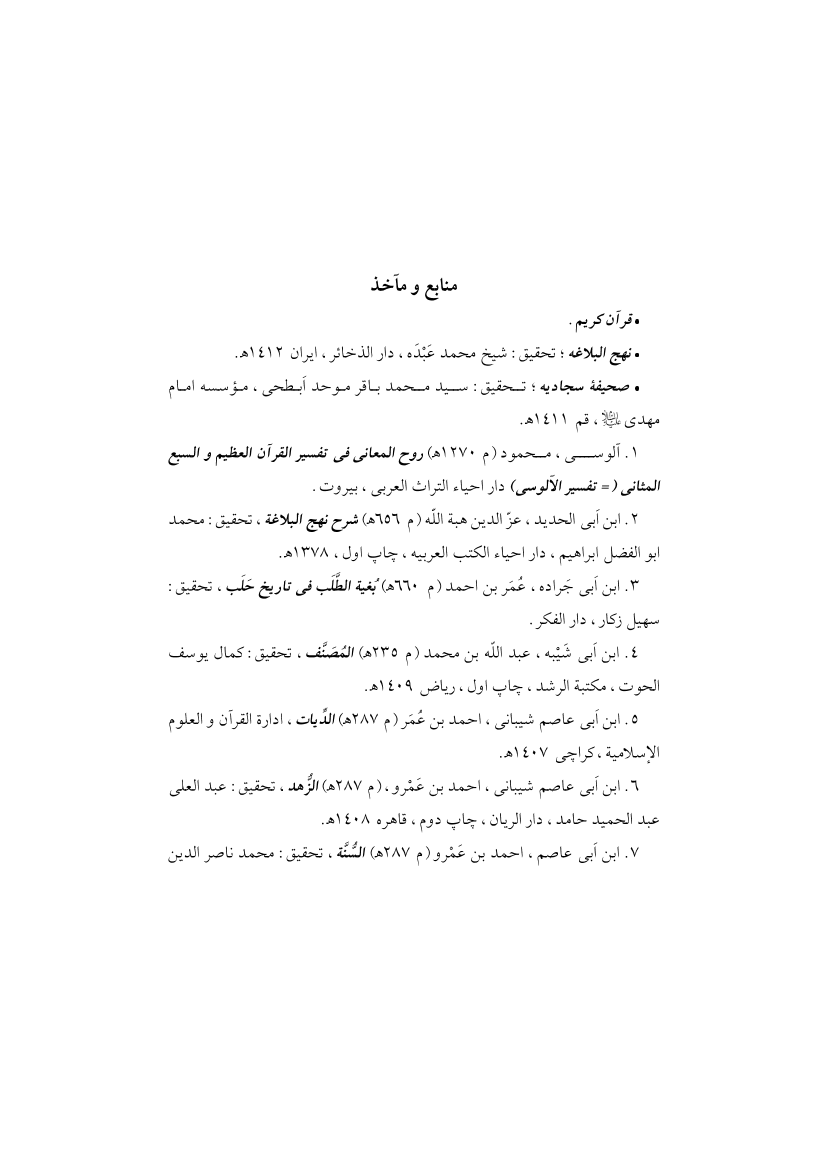 منابع و مآخذ
• قرآن کریم .
• نهج البلاغه ؛ تحقیق : شیخ محمد عَبْدَه ، دار الذخائر ، ایران ١٤١٢ه‍.
• صحیفۀ سجادیه ؛ تـحقیق : سـید مـحمد بـاقر مـوحد اَبـطحی ، مـؤسسه امـام
مهدی ﷷ ، قم ١٤١١ه‍.
١. آلوســی ، مـحمود (م ١٢٧٠ه‍) روح المعانی فی تفسیر القرآن العظیم و السبع
المثانی (= تفسیر الآلوسی) دار احیاء التراث العربی ، بیروت .
٢. ابن اَبی الحدید ، عزّ الدین هبة اللّه (م ٦٥٦ه‍) شرح نهج البلاغة ، تحقیق : محمد
ابو الفضل ابراهیم ، دار احیاء الکتب العربیه ، چاپ اول ، ١٣٧٨ه‍.
٣. ابن اَبی جَراده ، عُمَر بن احمد (م ٦٦٠ه‍) بُغیة الطَّلَب فی تاریخ حَلَب ، تحقیق :
سهیل زکار ، دار الفکر .
٤. ابن اَبی شَیْبه ، عبد اللّه بن محمد (م ٢٣٥ه‍) المُصَنَّف ، تحقیق : کمال یوسف
الحوت ، مکتبة الرشد ، چاپ اول ، ریاض ١٤٠٩ه‍.
٥. ابن اَبی عاصم شیبانی ، احمد بن عُمَر (م ٢٨٧ه‍) الدِّیات ، ادارة القرآن و العلوم
الإسلامیة ، کراچی ١٤٠٧ه‍.
٦. ابن اَبی عاصم شیبانی ، احمد بن عَمْرو ، (م ٢٨٧ه‍) الزُّهد ، تحقیق : عبد العلی
عبد الحمید حامد ، دار الریان ، چاپ دوم ، قاهره ١٤٠٨ه‍.
٧. ابن اَبی عاصم ، احمد بن عَمْرو (م ٢٨٧ه‍) السُّنَّة ، تحقیق : محمد ناصر الدین